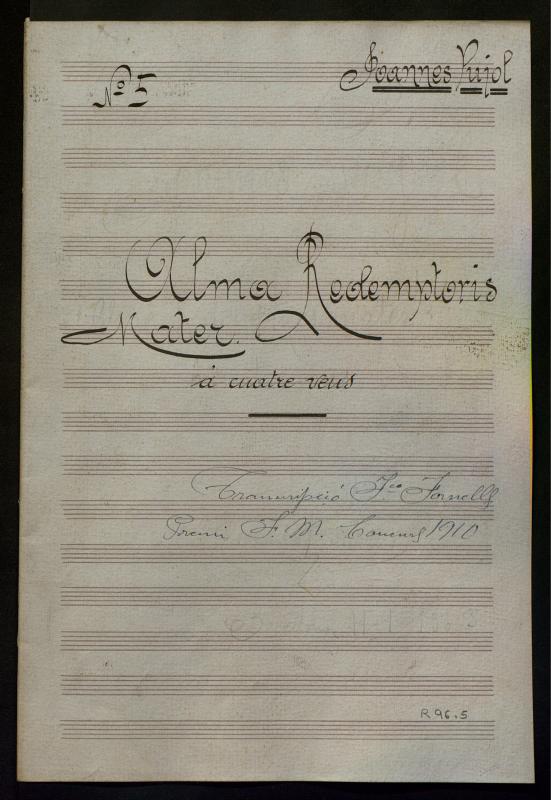 Nº 5
Joannes Pujol
Alma Redemptoris
Mater.
á cuatre veus
Transcripció Fco Fornells
Premi F. M. Concurs 1910
R 96.5